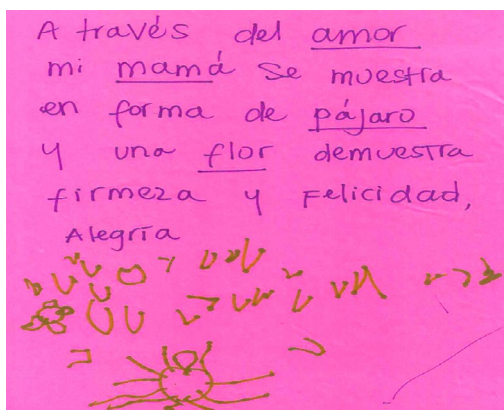 A través del amor
mi mamá se muestra
en forma de pájaro
y una flor demuestra
firmeza y Felicidad,
Alegría